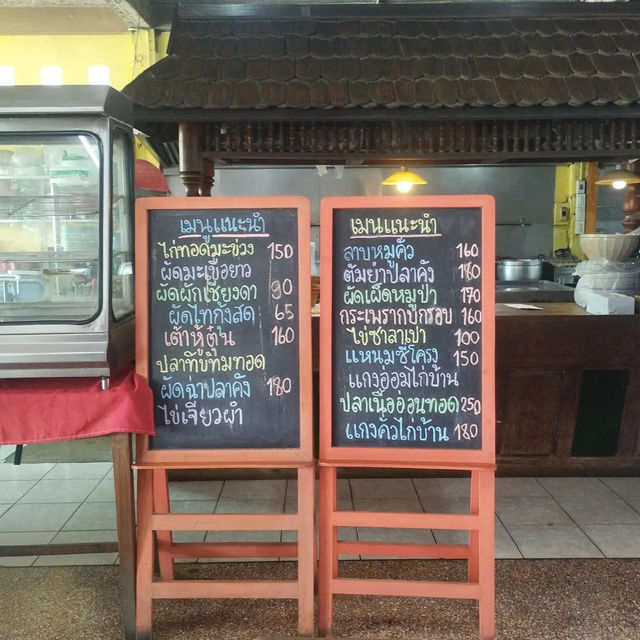 เมนูแนะนำ
ไก่ทอดมะข่วง 150
ผัดมะเขือยาว
ผัดผักเชียงดา 90
ผัดไทกุ้งสด 65
เต้าหู้ตุ๋น 160
ปลาทับทิมทอด
ผัดฉ่าปลาคัง 180
ไข่เจียวผำ
เมนูแนะนำ
ลาบหมูคั่ว 160
ต้มยำปลาคัง 180
ผัดเผ็ดหมูป่า 170
กระเพรากบกรอบ 160
ไข่ซาลาเปา 100
แหนมซี่โครง 150
แกงอ่อมไก่บ้าน
ปลาเนื้ออ่อนทอด 250
แกงคั่วไก่บ้าน 180